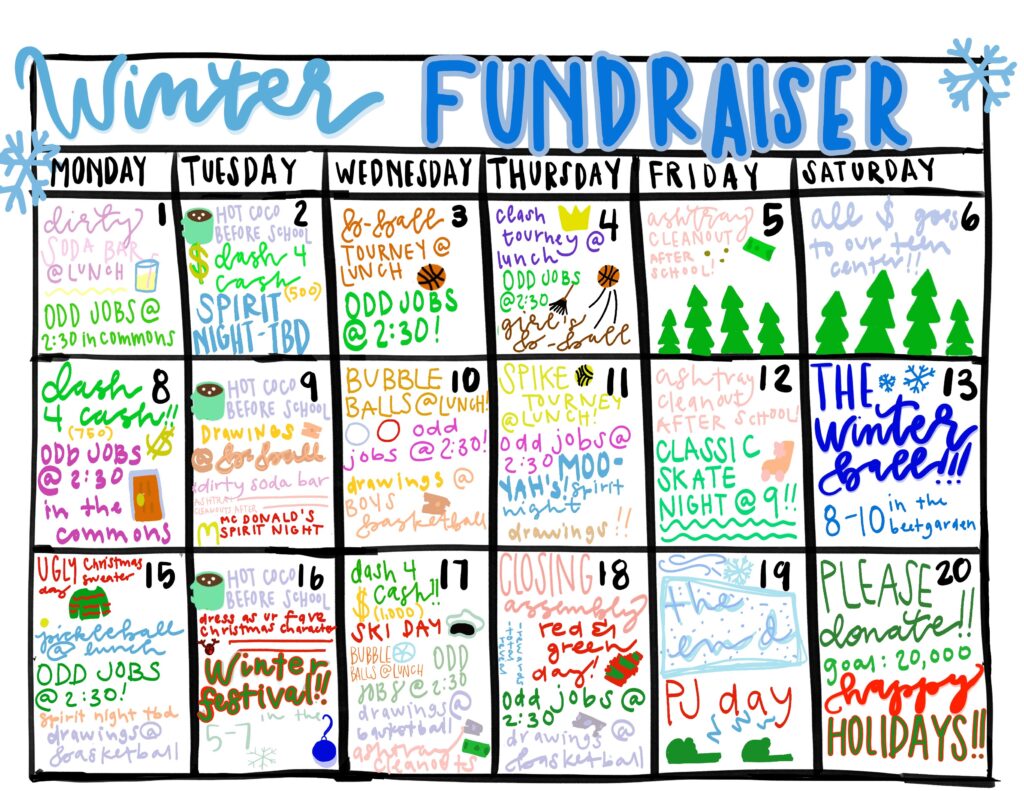 Winter FUNDRAISER
MONDAY TUESDAY WEDNESDAY THURSDAY FRIDAY SATURDAY
1
dirty
SODA BAR
@ LUNCH
ODD JOBS @
2:30 in commons
2
HOT COCO
BEFORE SCHOOL
$ dash 4
cash
(500)
SPIRIT
NIGHT-TBD
3
b-ball
TOURNEY @
LUNCH
ODD JOBS
@ 2:30!
4
clash
tourney @
lunch
ODD JOBS
@ 2:30
girl's
b-ball
5
ashtray
CLEANOUT
AFTER
SCHOOL!
6
all $ goes
to our teen
center!!
8
dash
4 cash!!
(750)
$
ODD JOBS
@ 2:30
in the
commons
9
HOT COCO
BEFORE SCHOOL
DRAWINGS
@ b-ball
dirty soda bar
ASHTRAY
CLEANOUTS AFTER
MCDONALD'S
SPIRIT NIGHT
10
BUBBLE
BALLS @ LUNCH!
odd
jobs @ 2:30!
drawings @
BOYS
basketball
11
SPIKE
TOURNEY
@ LUNCH!
odd jobs @
2:30 MOO-
YAH'S! spirit
night
drawings !!
12
ashtray
cleanout
AFTER SCHOOL!
CLASSIC
SKATE
NIGHT @ 9!!
13
THE
winter
ball!!!
8-10 in the
beetgarden
15
UGLY christmas
sweater
day
pickleball
@ lunch
ODD JOBS
@ 2:30!
spirit night tbd
drawings @
basketball
16
HOT COCO
BEFORE SCHOOL
dress as ur fave
christmas character
Winter
festival!!
in the
5-7
17
dash 4
$ cash!!
(1,000)
SKI DAY
BUBBLE
BALLS @ LUNCH
ODD
JOBS @ 2:30
drawings @
basketball
ashtray
cleanouts
18
CLOSING
assembly
red &
green
day!
odd jobs @
2:30
drawings @
basketball
19
the
end
PJ day
20
PLEASE
donate!!
goal: 20,000
happy
HOLIDAYS!!